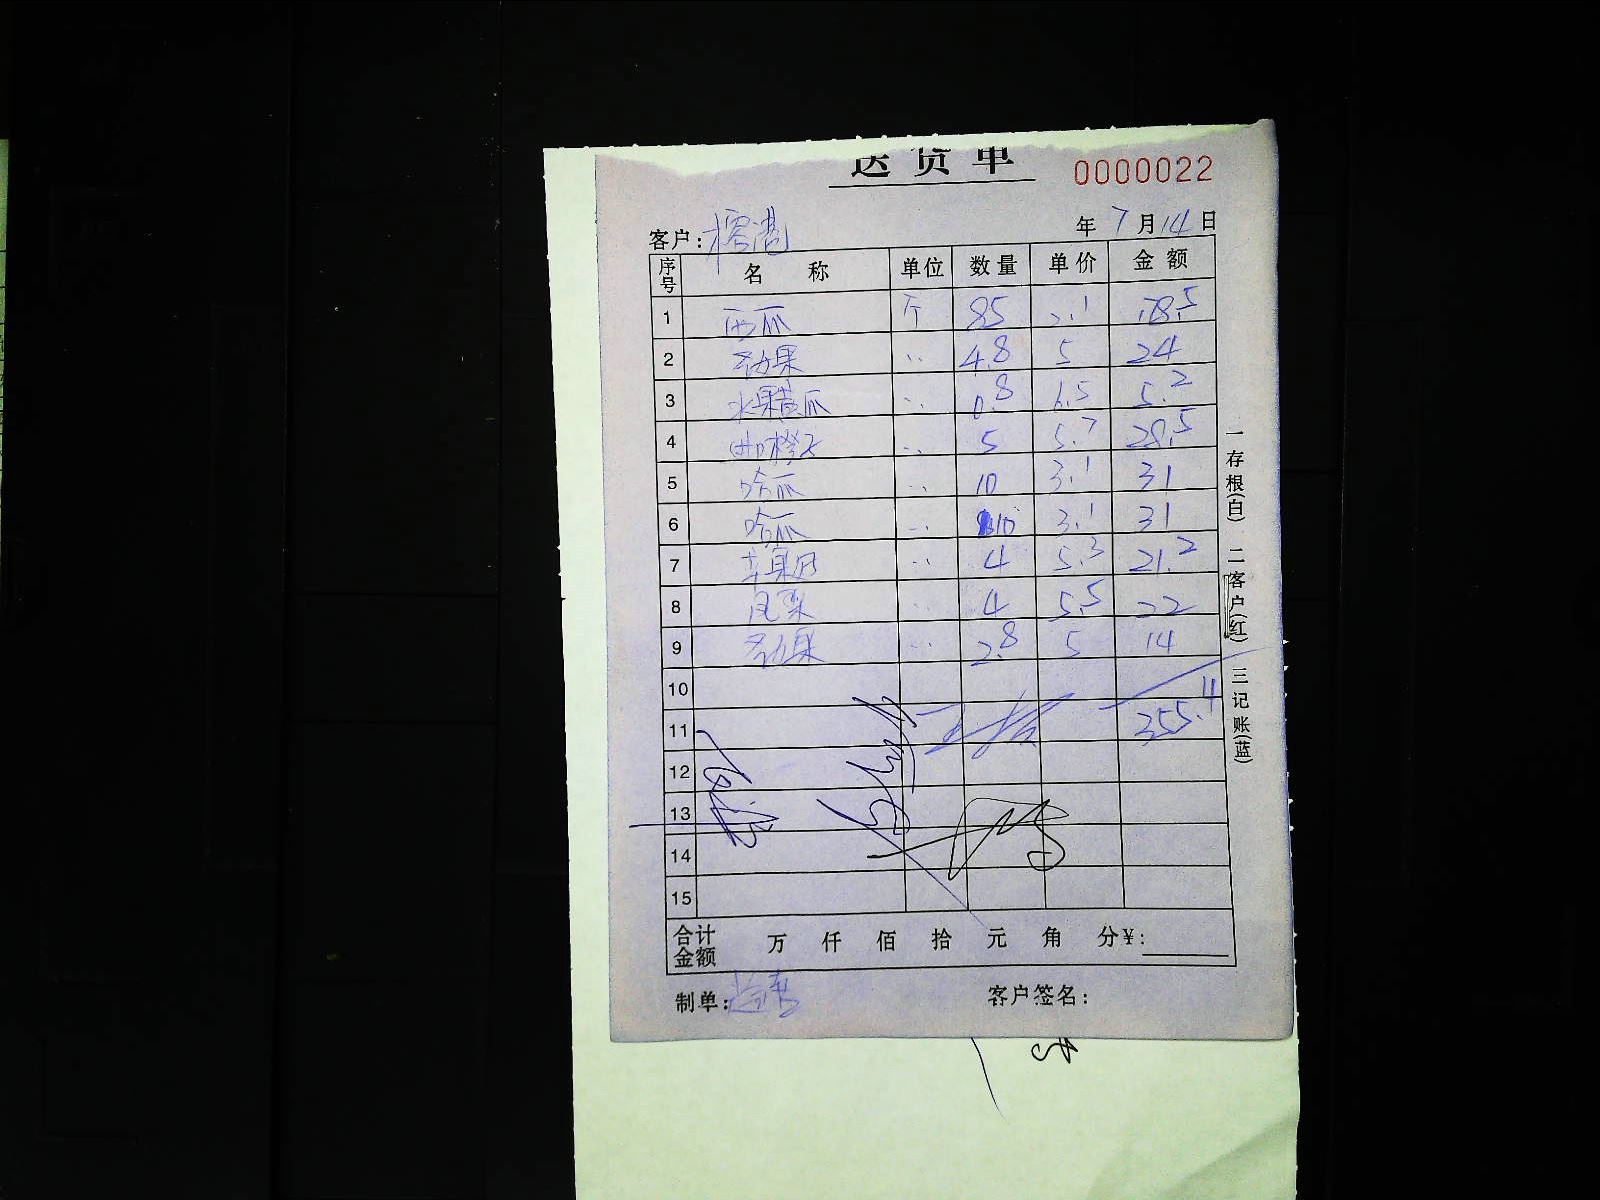 送货单 0000022
客户: 榕港 年 7 月 14 日
序号 名称 单位 数量 单价 金额
1 西瓜 斤 85 2.1 178.5
2 4.8 5 24
3 水果黄瓜 〃 0.8 6.5 5.2
4 〃 5 5.7 28.5
5 哈瓜 〃 10 3.1 31
6 哈瓜 〃 10 3.1 31
7 〃 4 5.3 21.2
8 凤梨 〃 4 5.5 22
9 〃 2.8 5 14
10
11 355.4
12
13
14
15
合计金额 万 仟 佰 拾 元 角 分¥:
制单: 客户签名:
一存根(白) 二客户(红) 三记账(蓝)